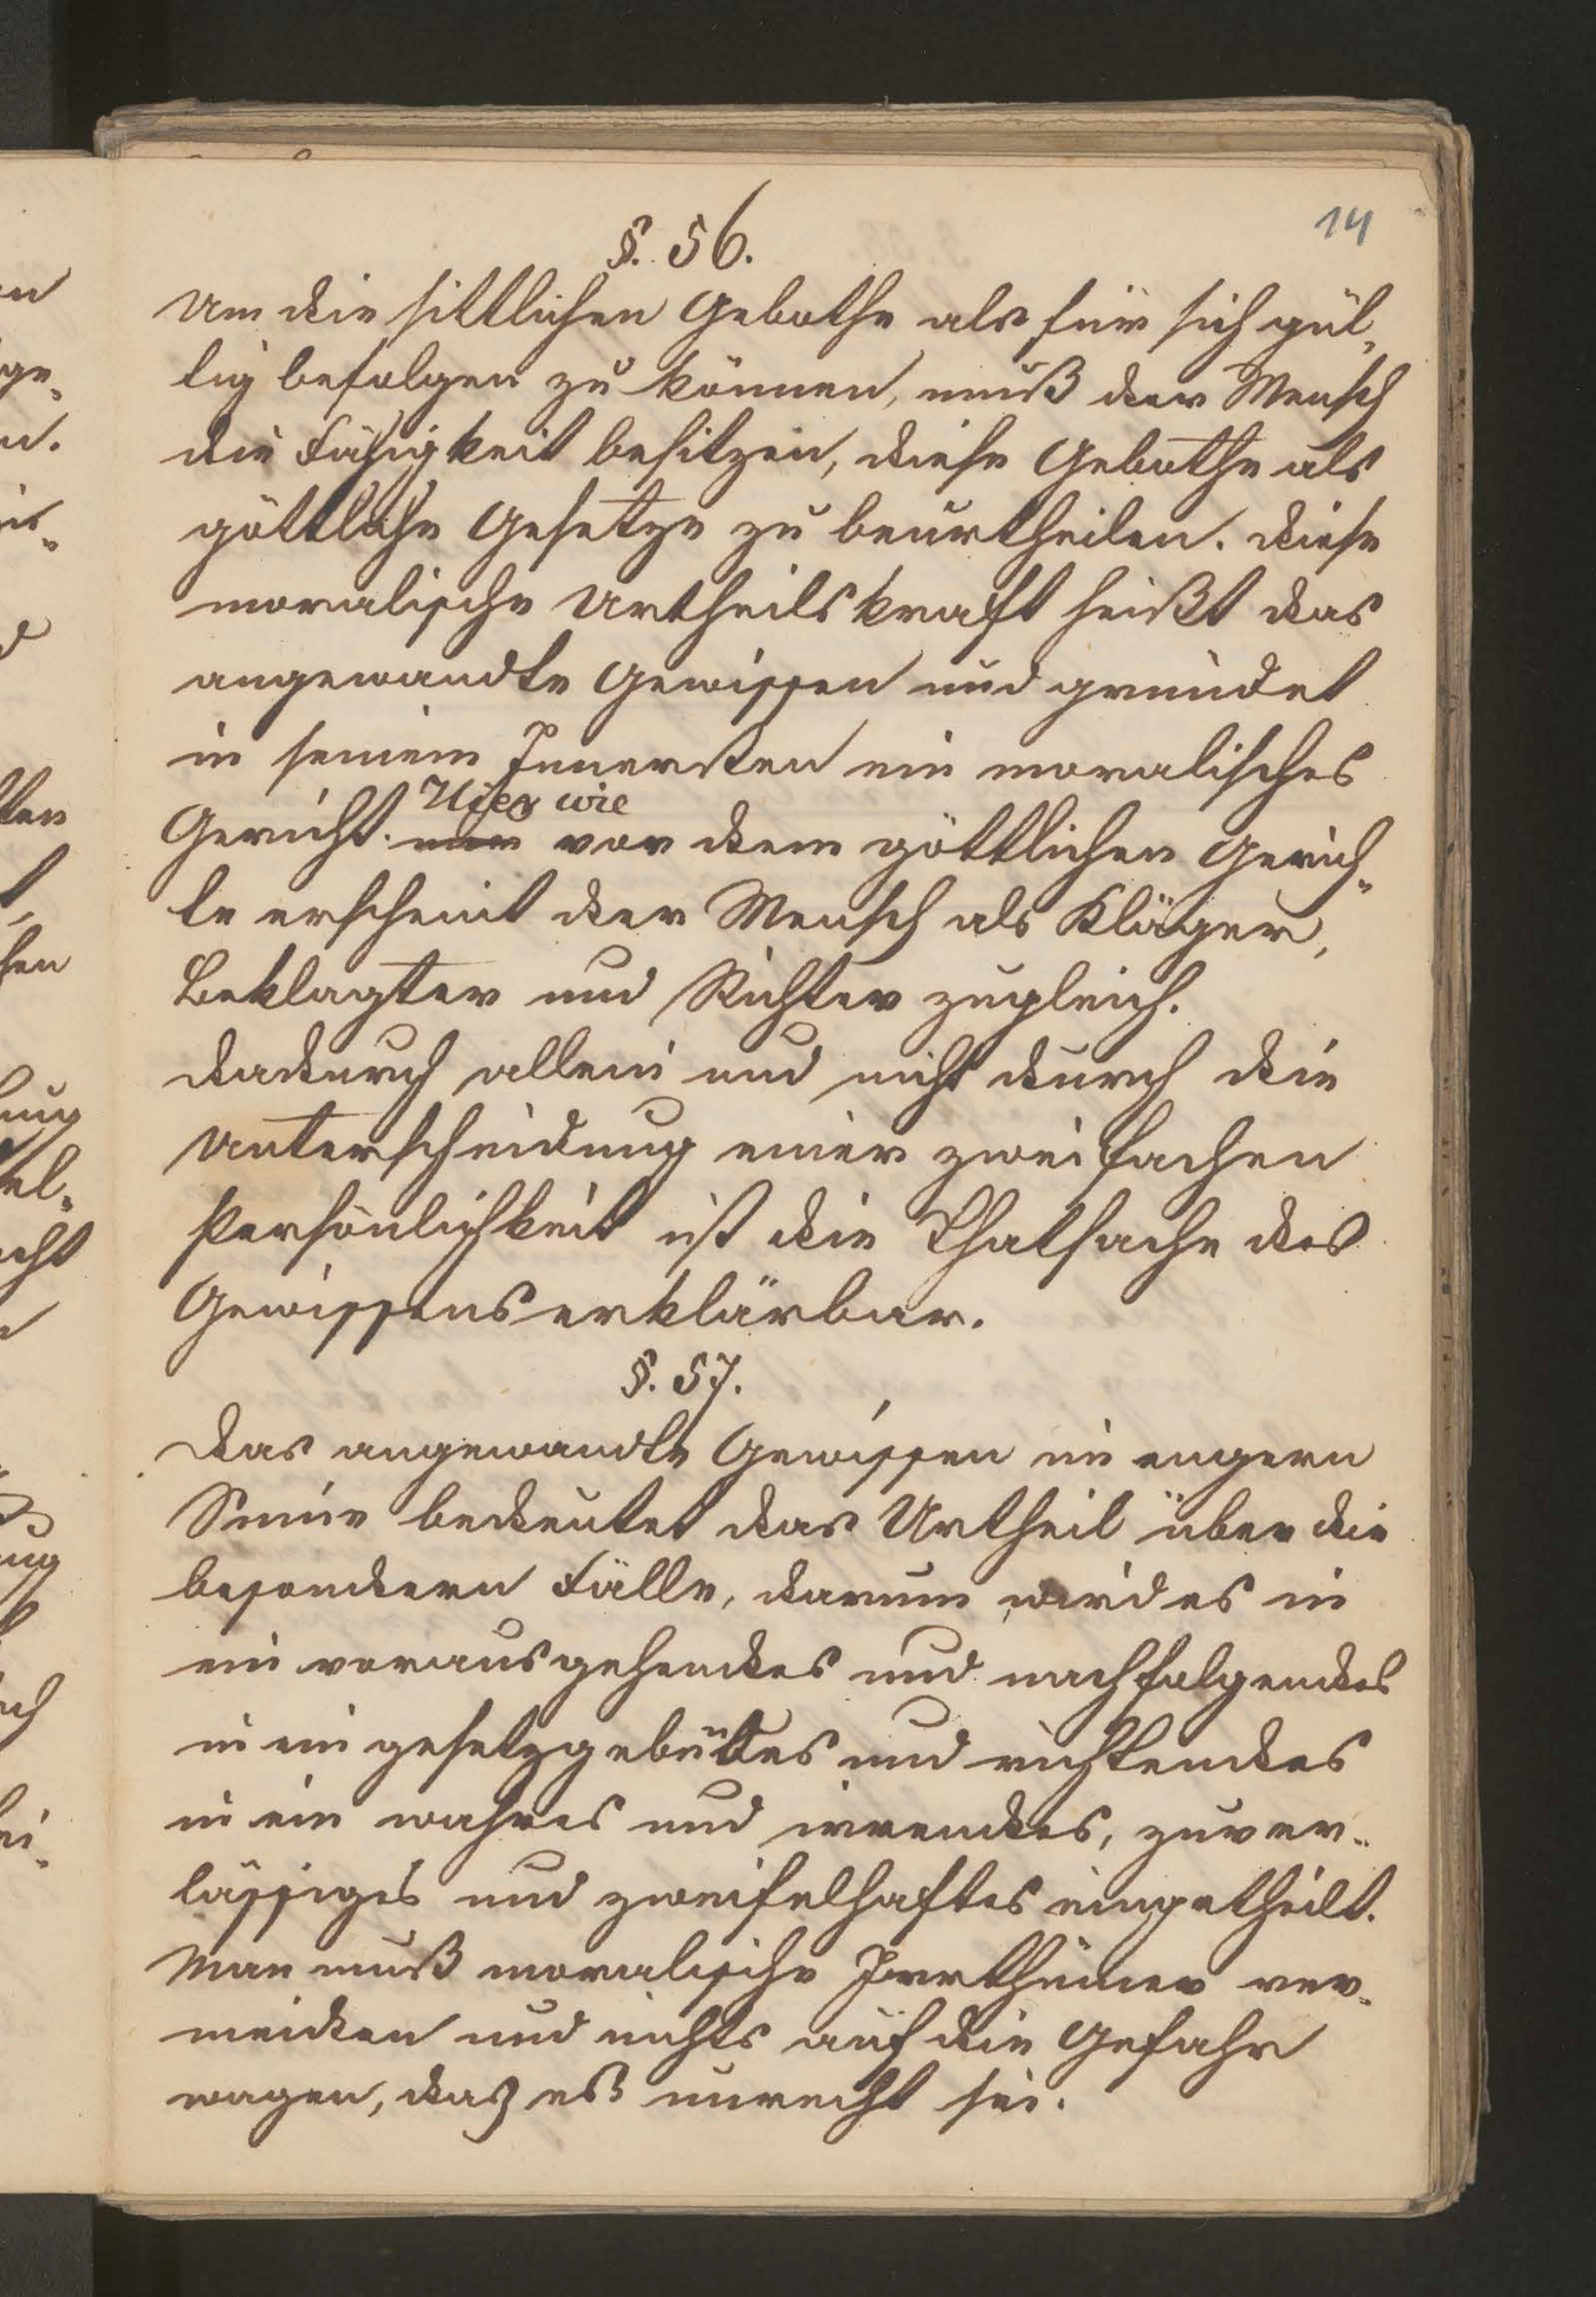 14
§. 56.
Um die sittlichen Gebothe als für sich gül-
tig befolgen zu können, muß der Mensch
die Fähigkeit besitzen, diese Gebothe als
göttliche Gesetze zu beurtheilen. Diese
moralische Urtheilskraft heißt das
angewandte Gewissen und gründet
in seinem Innersten ein moralisches
Hier wie
Gericht. vor dem göttlichen Gerich-
te erscheint der Mensch als Kläger,
Beklagter und Richter zugleich.
Dadurch allein und nicht durch die
Unterscheidung einer zweifachen
Persönlichkeit ist die Thatsache des
Gewissens erklärbar.
§. 57.
Das angewandte Gewissen im engern
Sinne bedeutet das Urtheil über die
besondern Fälle, darum wird es in
ein vorausgehendes und nachfolgendes
in ein und richtendes
in ein wahres und irrendes, zuver-
lässiges und zweifelhaftes eingetheilt.
Man muß moralische Irrthümer ver-
meiden und nichts auf die Gefahr
wagen, daß es unrecht sei.